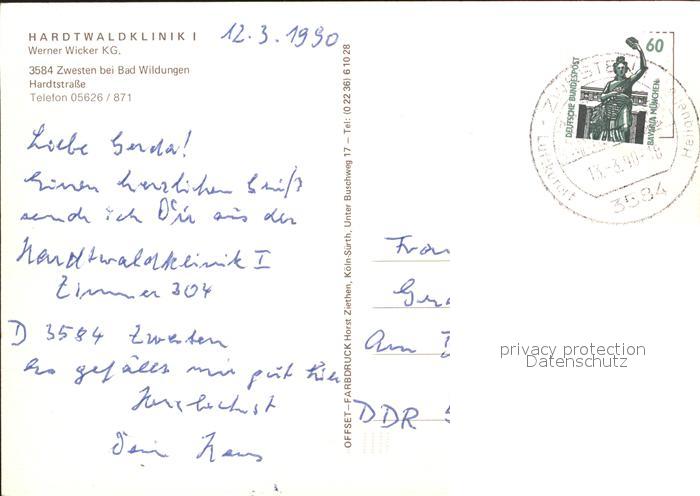 HARDTWALDKLINIK I
Werner Wicker KG.
3584 Zwesten bei Bad Wildungen
Hardtstraße
Telefon 05626 / 871
12.3.1990
Liebe Gerda!
Einen herzlichen Gruß
sende ich Dir aus der
Hardtwaldklinik I
Zimmer 304
D 3584 Zwesten
Es gefällt mir gut hier
Herzlichst
Dein Hans
OFFSET-FARBDRUCK Horst Ziethen, Köln-Sürth, Unter Buschweg 17 – Tel: (0 22 36) 6 10 28
60
DEUTSCHE BUNDESPOST
BAVARIA MÜNCHEN
ZWESTEN
Luftkurort
13.-3.90
3584
Frau
Am
DDR
privacy protection
Datenschutz